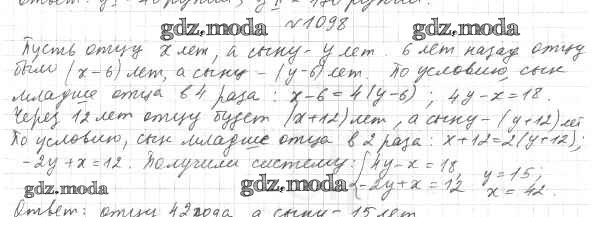 Ответ:
№1098
gdz.moda gdz.moda
Пусть отцу x лет, а сыну - y лет. 6 лет назад отцу
было (x-6) лет, а сыну - (y-6) лет. По условию, сын
младше отца в 4 раза: x-6=4(y-6); 4y-x=18.
Через 12 лет отцу будет (x+12) лет, а сыну - (y+12) лет
По условию, сын младше отца в 2 раза: x+12=2(y+12);
-2y+x=12. Получили систему: {4y-x=18, y=15;
-2y+x=12, x=42.
gdz.moda gdz.moda
Ответ: отцу 42 года, а сыну - 15 лет.